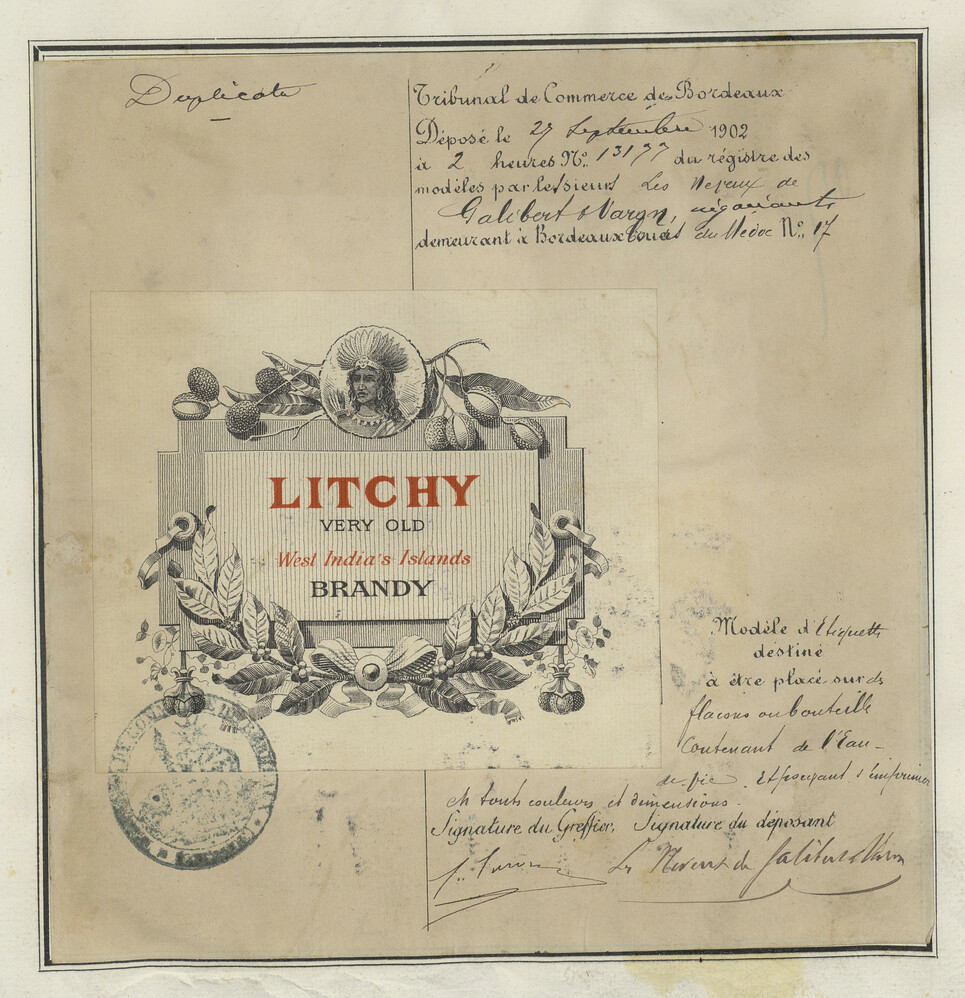 Duplicata
Tribunal de Commerce de Bordeaux
Déposé le 27 Septembre 1902
à 2 heures No. 13177 du régistre des
modèles par les sieurs Les Neveux de
Galibert & Varon, négociants
demeurant à Bordeaux Cours du Médoc No. 17
LITCHY
VERY OLD
West India's Islands
BRANDY
Modèle d'Etiquette
destiné
à être placé sur ds
flacons ou bouteille
Contenant de l'Eau-
de vie. Et pouvant s'imprimer
en touts couleurs et dimensions.
Signature du Greffier. Signature du déposant
Les Neveux de Galibert & Varon